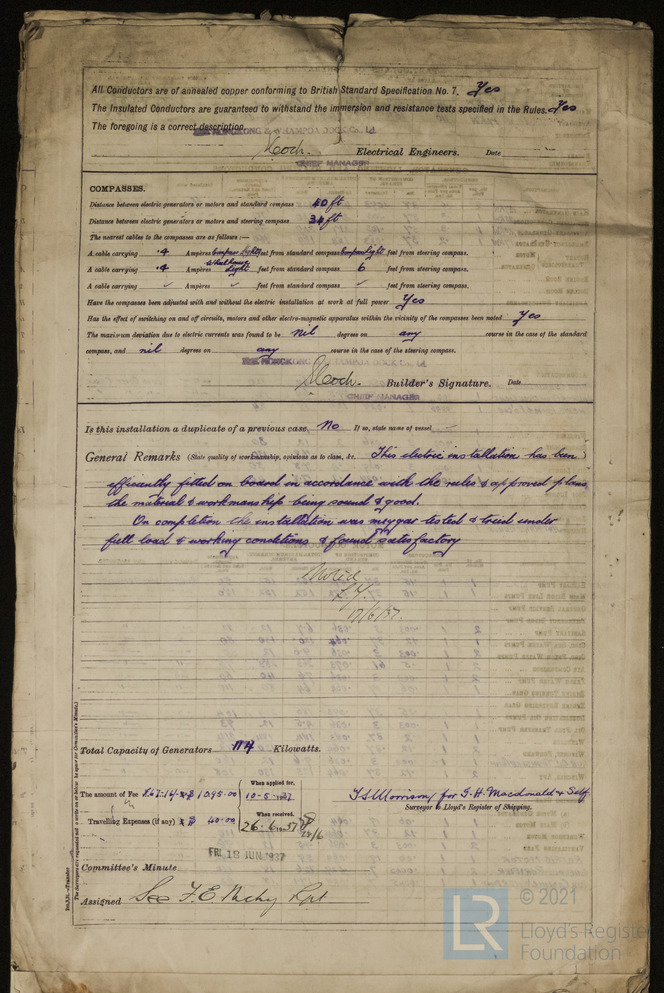 All Conductors are of annealed copper conforming to British Standard Specification No. 7. Yes
The Insulated Conductors are guaranteed to withstand the immersion and resistance tests specified in the Rules. Yes
The foregoing is a correct description
HONGKONG & WHAMPOA DOCK Co. Ld
Electrical Engineers. Date
CHIEF MANAGER
COMPASSES.
Distance between electric generators or motors and standard compass 40 ft
Distance between electric generators or motors and steering compass 34 ft
The nearest cables to the compasses are as follows:—
A cable carrying .4 Ampères Compass Light feet from standard compass Compass Light feet from steering compass.
A cable carrying .4 Ampères Wheelhouse Light feet from standard compass 6 feet from steering compass.
A cable carrying ✓ Ampères ✓ feet from standard compass ✓ feet from steering compass.
Have the compasses been adjusted with and without the electric installation at work at full power Yes
Has the effect of switching on and off circuits, motors and other electro-magnetic apparatus within the vicinity of the compasses been noted Yes
The maximum deviation due to electric currents was found to be nil degrees on any course in the case of the standard
compass, and nil degrees on any course in the case of the steering compass.
THE HONGKONG & WHAMPOA DOCK Co. Ld
Builder's Signature. Date
CHIEF MANAGER
Is this installation a duplicate of a previous case No If so, state name of vessel
General Remarks (State quality of workmanship, opinions as to class, &c. This electric installation has been
efficiently fitted on board in accordance with the rules & approved plans
the material & workmanship being sound & good.
On completion the installation was meggar tested & tried under
full load & working conditions & found satisfactory
Noted
17/6/37
Total Capacity of Generators 174 Kilowatts.
The amount of Fee $1095.00
When applied for, 10-5-1937
Travelling Expenses (if any) $ 40.00
When received, 26.6.1937
T S Morrison, for G. H. Macdonald & Self
Surveyor to Lloyd's Register of Shipping.
FRI 18 JUN 1937
Committee's Minute
Assigned See F.E. Mchy Rpt
© 2021
LR
Lloyd's Register
Foundation